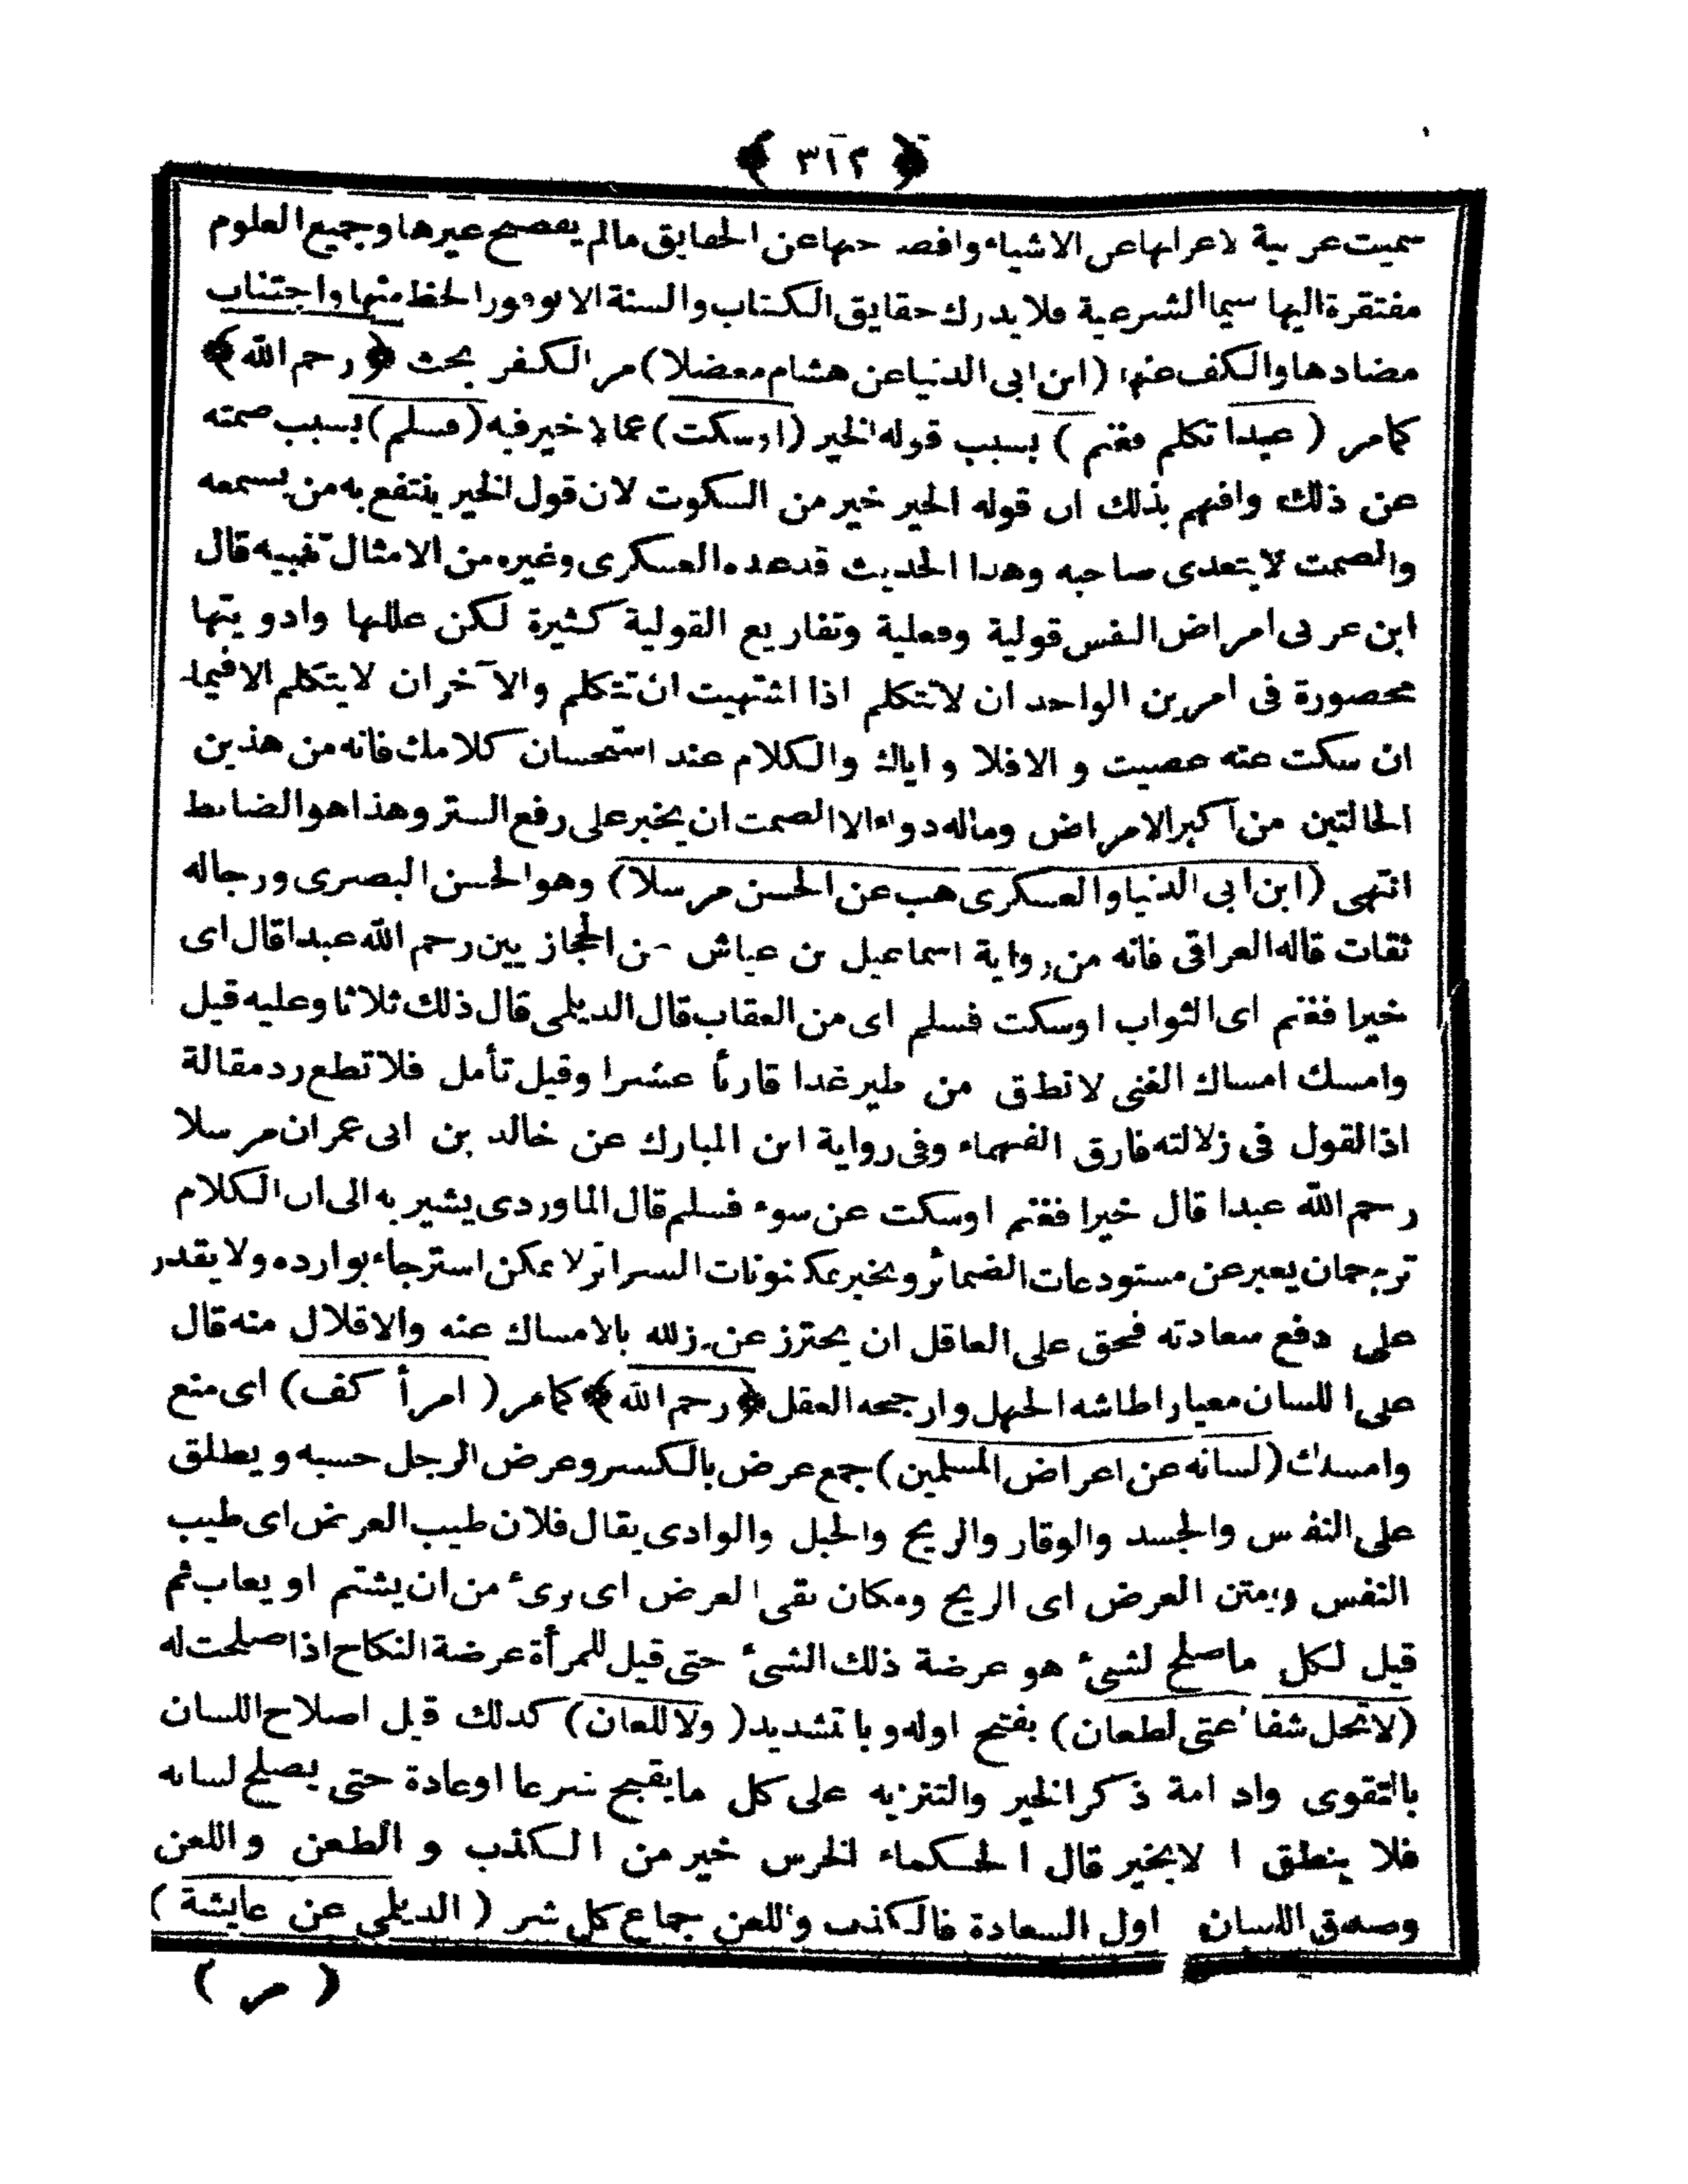 ﴿ ٣١٢ ﴾
سميت عربية لاعرابها عن الاشياء وافصاحها عن الحقايق مالم يفصح غيرها وجميع العلوم
مفتقرة اليها سيما الشرعية فلا يدرك حقايق الكتاب والسنة الا بوفور الحظ منها واجتناب
مضادها والكف عنها (ابن ابى الدنيا عن هشام معضلا) مر الكفر بحث ﴿رحم الله﴾
كمامر (عبدا تكلم فغنم) بسبب قوله الخير (اوسكت) عمالا خير فيه (فسلم) بسبب صمته
عن ذلك وافهم بذلك ان قوله الخير خير من السكوت لان قول الخير ينتفع به من يسمعه
والصمت لا يتعدى صاحبه وهذا الحديث قدعده العسكرى وغيره من الامثال تنبيه قال
ابن عربى امراض النفس قولية وفعلية وتفاريع القولية كثيرة لكن عللها وادويتها
محصورة فى امرين الواحد ان لا تتكلم اذا اشتهيت ان تتكلم والآخر ان لا يتكلم الا فيما
ان سكت عنه عصيت و الا فلا و اياك والكلام عند استحسان كلامك فانه من هذين
الحالتين من اكبر الامراض وماله دواء الا الصمت ان يخبر على رفع الستر وهذا هو الضابط
انتهى (ابن ابى الدنيا والعسكرى هب عن الحسن مرسلا) وهو الحسن البصرى ورجاله
ثقات قاله العراقى فانه من رواية اسماعيل بن عباش عن الحجازيين رحم الله عبدا قال اى
خيرا فغنم اى الثواب اوسكت فسلم اى من العقاب قال الديلمى قال ذلك ثلاثا وعليه قيل
وامسك امساك الغنى لا تطق من طير غدا قارئا عشرا وقيل تأمل فلا تطع رد مقالة
اذا القول فى زلالته فارق الفهماء وفى رواية ابن المبارك عن خالد بن ابى عمران مرسلا
رحم الله عبدا قال خيرا فغنم اوسكت عن سوء فسلم قال الماوردى يشير به الى ان الكلام
ترجمان يعبر عن مستودعات الضمائر ويخبر بمكنونات السرائر لا يمكن استرجاء بوارده ولا يقدر
على دفع سعادته فحق على العاقل ان يحترز عن زلله بالامساك عنه والاقلال منه قال
على اللسان معيار اطاشه الجهل وارجحه العقل ﴿رحم الله﴾ كمامر (امرأ كف) اى منع
وامسك (لسانه عن اعراض المسلمين) جمع عرض بالكسر وعرض الرجل حسبه و يطلق
على النفس والجسد والوقار والريح والحبل والوادى يقال فلان طيب العرض اى طيب
النفس ومنتن العرض اى الريح ومكان نقى العرض اى برئ من ان يشتم او يعاب ثم
قيل لكل ماصلح لشئ هو عرضة ذلك الشئ حتى قيل للمرأة عرضة النكاح اذا صلحت له
(لاتحل شفاعتى لطعان) بفتح اوله و با تشديد (ولا للعان) كذلك قيل اصلاح اللسان
بالتقوى وادامة ذكر الخير والتنزيه على كل مايقبح شرعا اوعادة حتى يصلح لسانه
فلا ينطق الا بخير قال الحكماء الخرس خير من الكذب و الطعن واللعن
وصدق اللسان اول السعادة فالكذب واللعن جماع كل شر (الديلمى عن عايشة)
( مر )